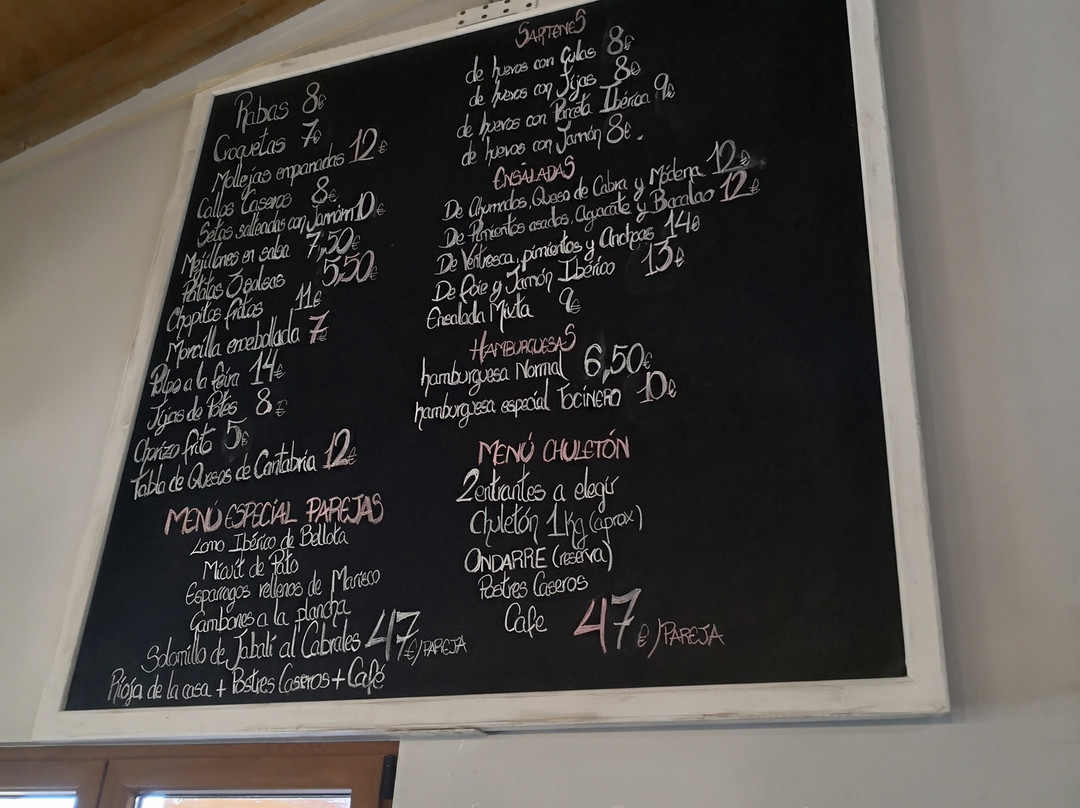 Rabas 8€
Croquetas 7€
Mollejas empanadas 12€
Callos Caseros 8€
Setas salteadas con Jamón 10€
Mejillones en salsa 7,50€
Patatas 2 salsas 5,50€
Chopitos fritos 11€
Morcilla encebollada 7€
Pulpo a la feira 14€
Jijas de Potes 8€
Chorizo frito 5€
Tabla de Quesos de Cantabria 12€
MENÚ ESPECIAL PAREJAS
Lomo Ibérico de Bellota
Micuit de Pato
Esparragos rellenos de Marisco
Gambones a la plancha
Solomillo de Jabalí al Cabrales 47€/PAREJA
Rioja de la casa + Postres Caseros + Café
SARTENES
de huevos con Gulas 8€
de huevos con Jijas 8€
de huevos con Panceta Ibérica 9€
de huevos con Jamón 8€.
ENSALADAS
De Ahumados, Queso de Cabra y Módena 12€
De Pimientos asados, Aguacate y Bacalao 12€
De Ventresca, pimientos y Anchoas 14€
De Foie y Jamón Ibérico 13€
Ensalada Mixta 9€
HAMBURGUESAS
hamburguesa Normal 6,50€
hamburguesa especial TOCINERO 10€
MENÚ CHULETÓN
2 entrantes a elegir
Chuletón 1Kg (aprox)
ONDARRE (reserva)
Postres Caseros
Cafe 47€/PAREJA